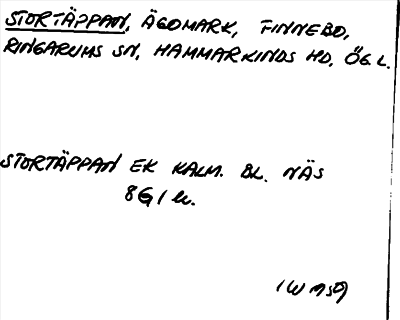 STORTÄPPAN, ÄGOMARK, FINNEBO,
RINGARUMS SN, HAMMARKINDS HD, ÖG L.
STORTÄPPAN EK KALM. BL. NÄS
8G1